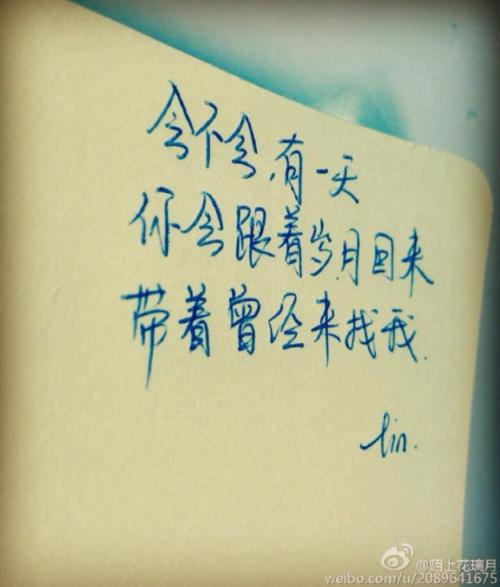 会不会.有一天
你会跟着岁月回来
带着曾经来找我.
tin.
@陌上花璃月
weibo.com/u/2089641675